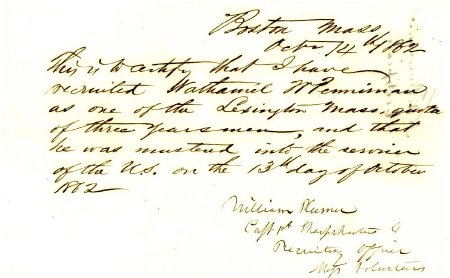 Boston Mass
Octr. 14th 1862
This is to certify that I have
recruited Nathaniel W Penniman
as one of the Lexington Mass, quota
of three years men, and that
he was mustered into the service
of the U.S. on the 13th day of October
1862
William Plumer
Capt 1st Sharpshooters &
Recruiting officer
Mass Volunteers